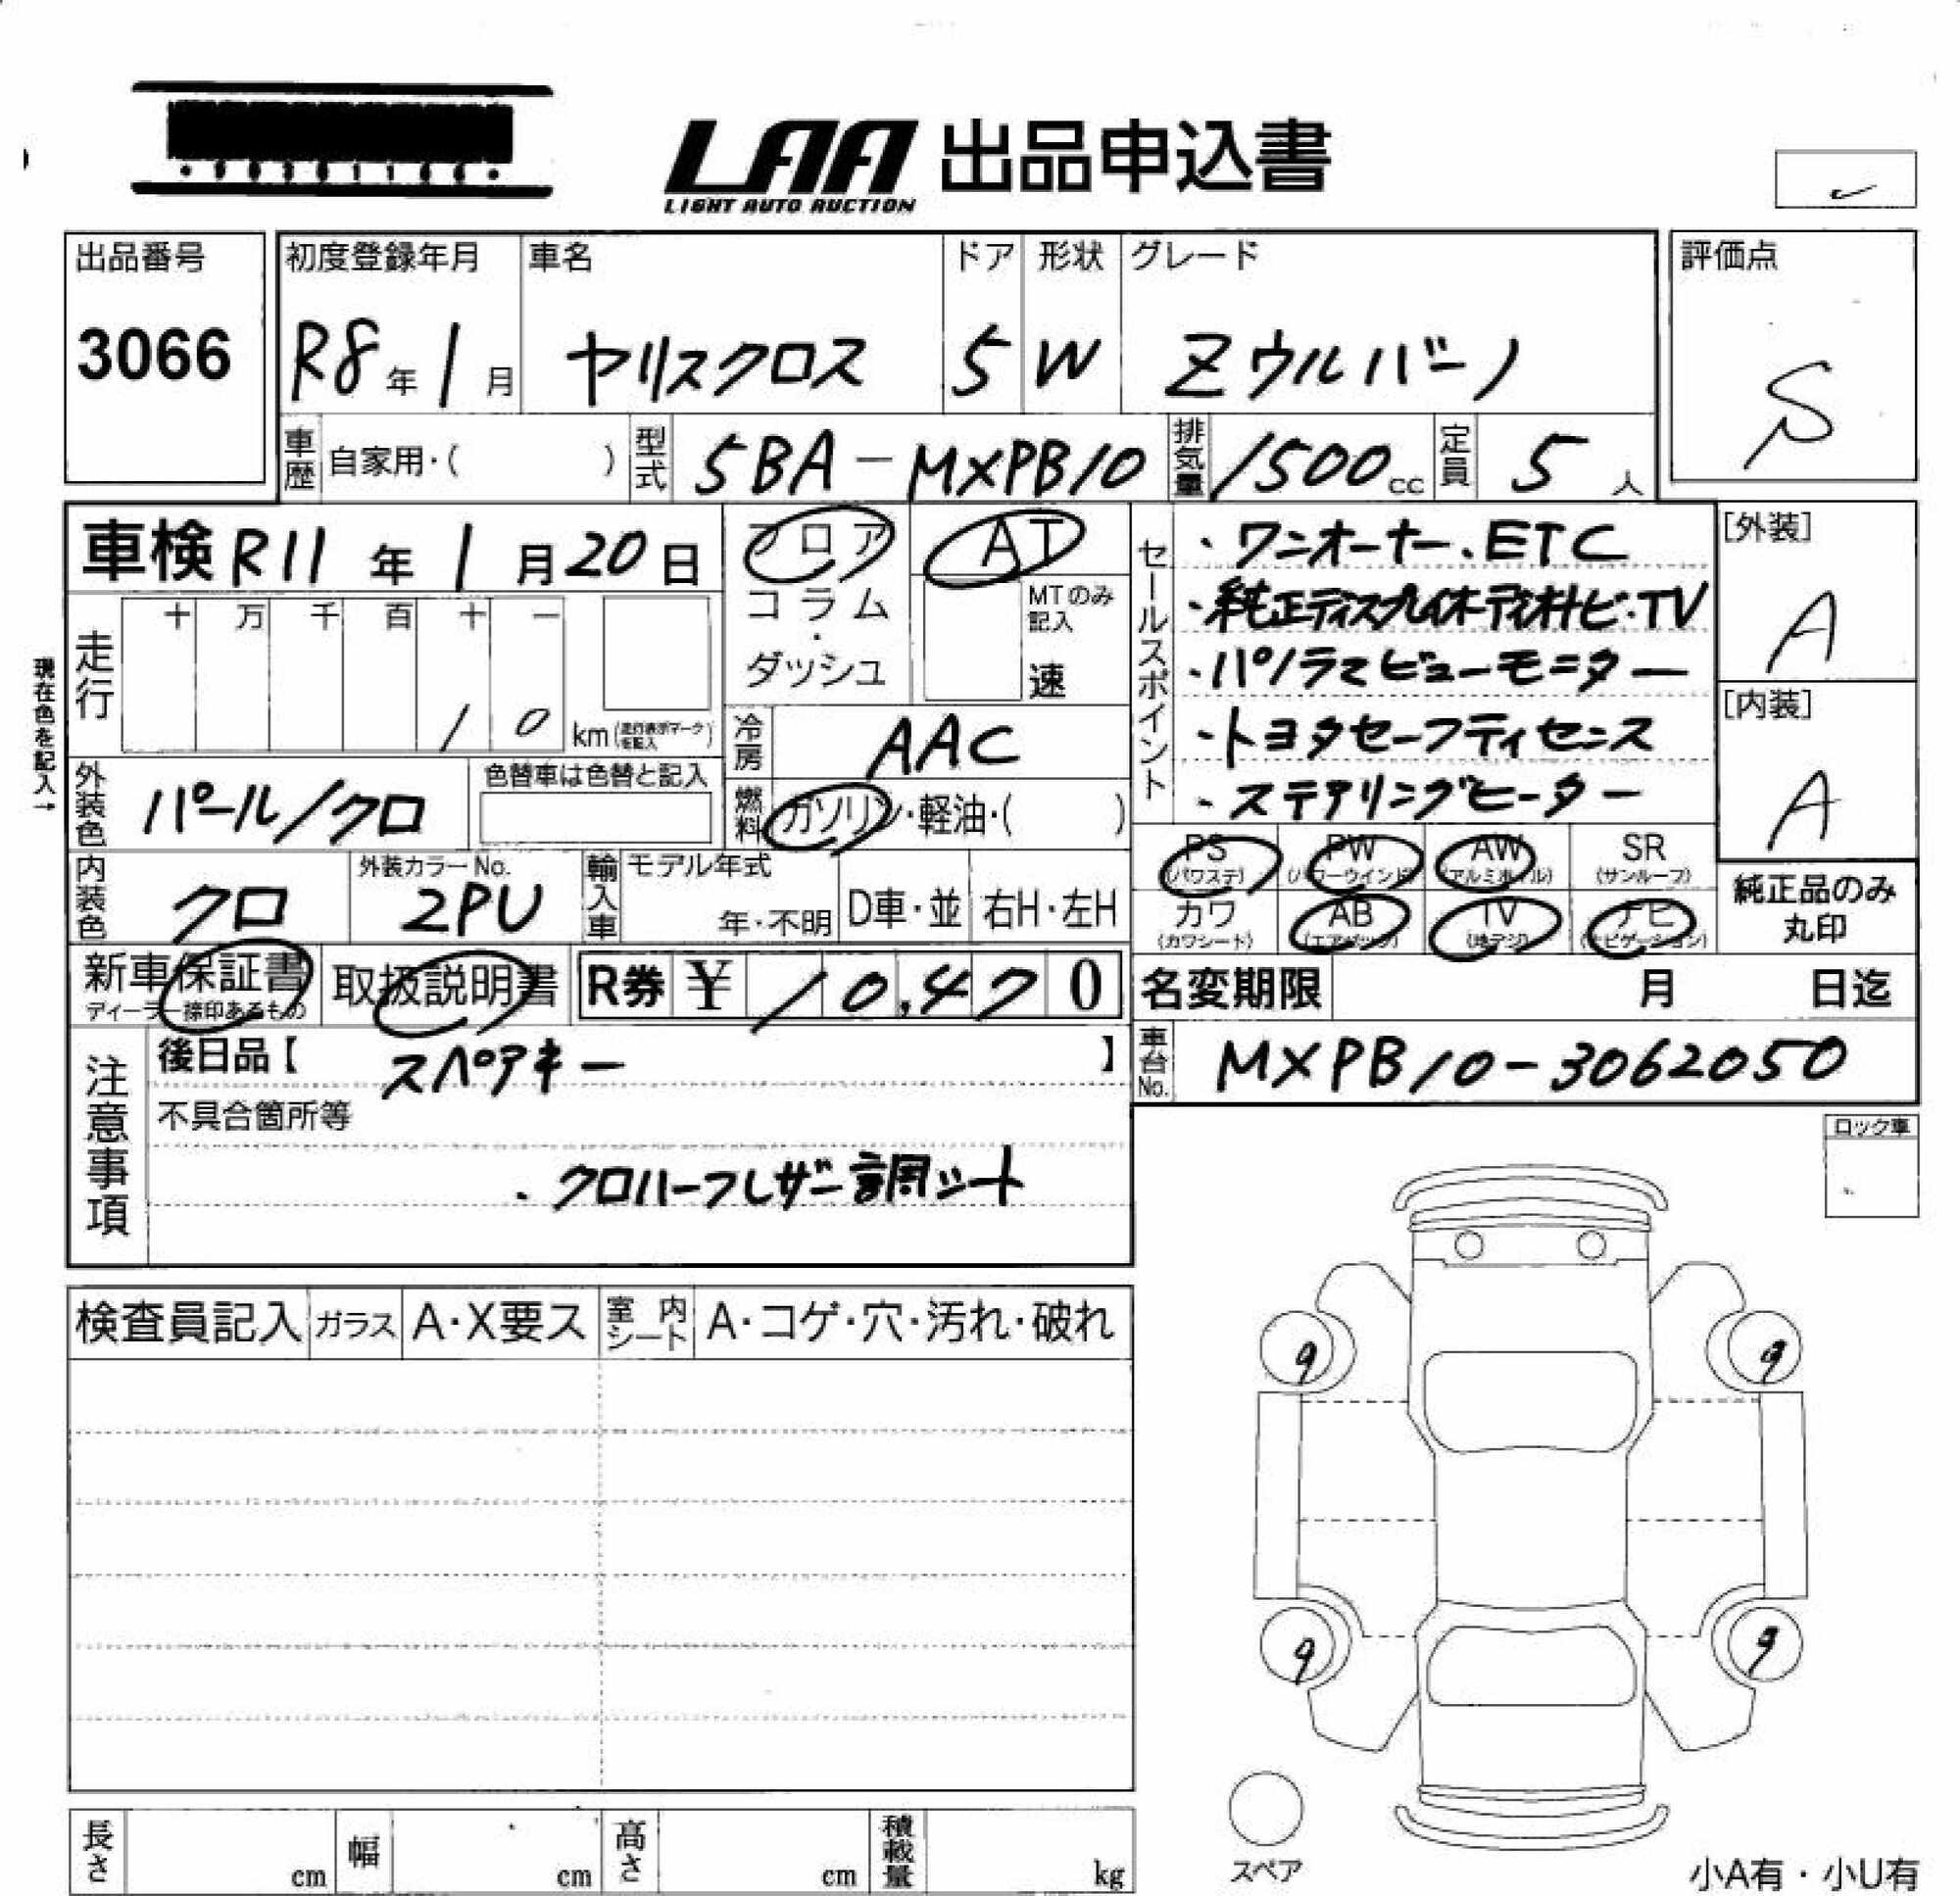 LAA 出品申込書
LIGHT AUTO AUCTION
出品番号
3066
初度登録年月
R8年1月
車名
ヤリスクロス
ドア
5
形状
W
グレード
Zウルバーノ
評価点
S
車歴 自家用・( )
型式 5BA-MXPB10
排気量 1500cc
定員 5人
車検 R11年1月20日
フロア
コラム・ダッシュ
AT
MTのみ記入
速
現在色を記入→
走行
十 万 千 百 十 一
1 0 km
冷房 AAC
燃料 ガソリン・軽油・( )
外装色 パール/クロ
色替車は色替と記入
内装色 クロ
外装カラーNo.
2PU
輸入車
モデル年式
年・不明
D車・並
右H・左H
新車保証書
ディーラー捺印あるもの
取扱説明書
R券 ¥ 10,470
セールスポイント
・ワンオーナー、ETC
・純正ディスプレイオーディオナビ・TV
・パノラマビューモニター
・トヨタセーフティセンス
・ステアリングヒーター
[外装]
A
[内装]
A
PS (パワステ)
PW (パワーウインド)
AW (アルミホイル)
SR (サンルーフ)
カワ (カワシート)
AB (エアバッグ)
TV (地デジ)
ナビ (ナビゲーション)
純正品のみ
丸印
名変期限 月 日迄
車台No. MXPB10-3062050
注意事項
後日品【 スペアキー 】
不具合箇所等
・クロハーフレザー調シート
ロック車
検査員記入
ガラス
A・X要ス
室内シート
A・コゲ・穴・汚れ・破れ
9
9
9
9
スペア
長さ cm
幅 cm
高さ cm
積載量 kg
小A有・小U有